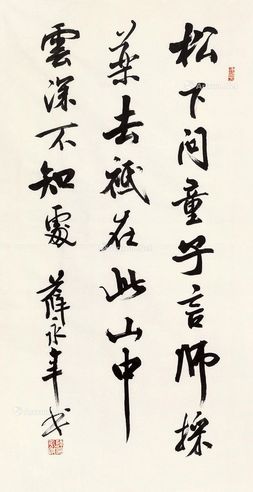 松下问童子言师採
药去祇在此山中
雲深不知處 薛永年书